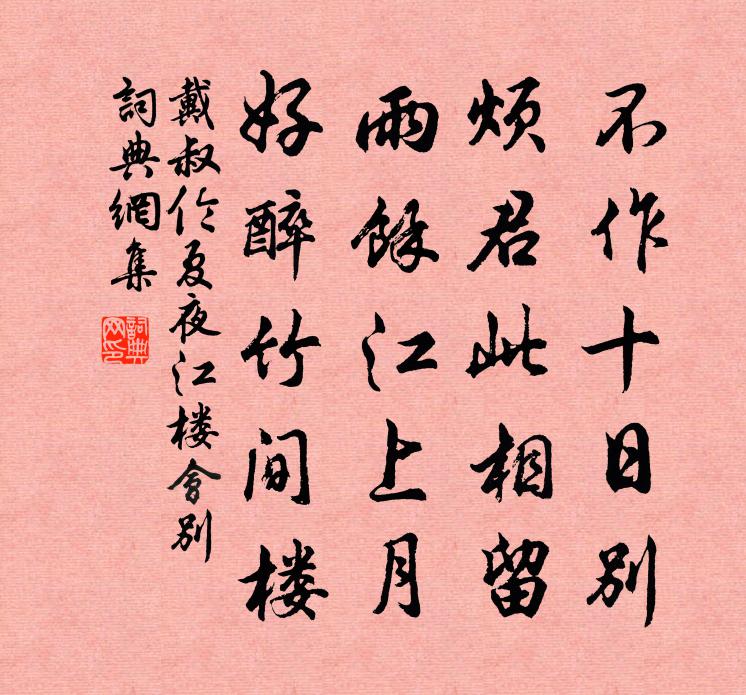 不作十日别
烦君此相留
雨餘江上月
好醉竹间楼
戴叔伦夏夜江楼會别
詞典網集
詞典网印